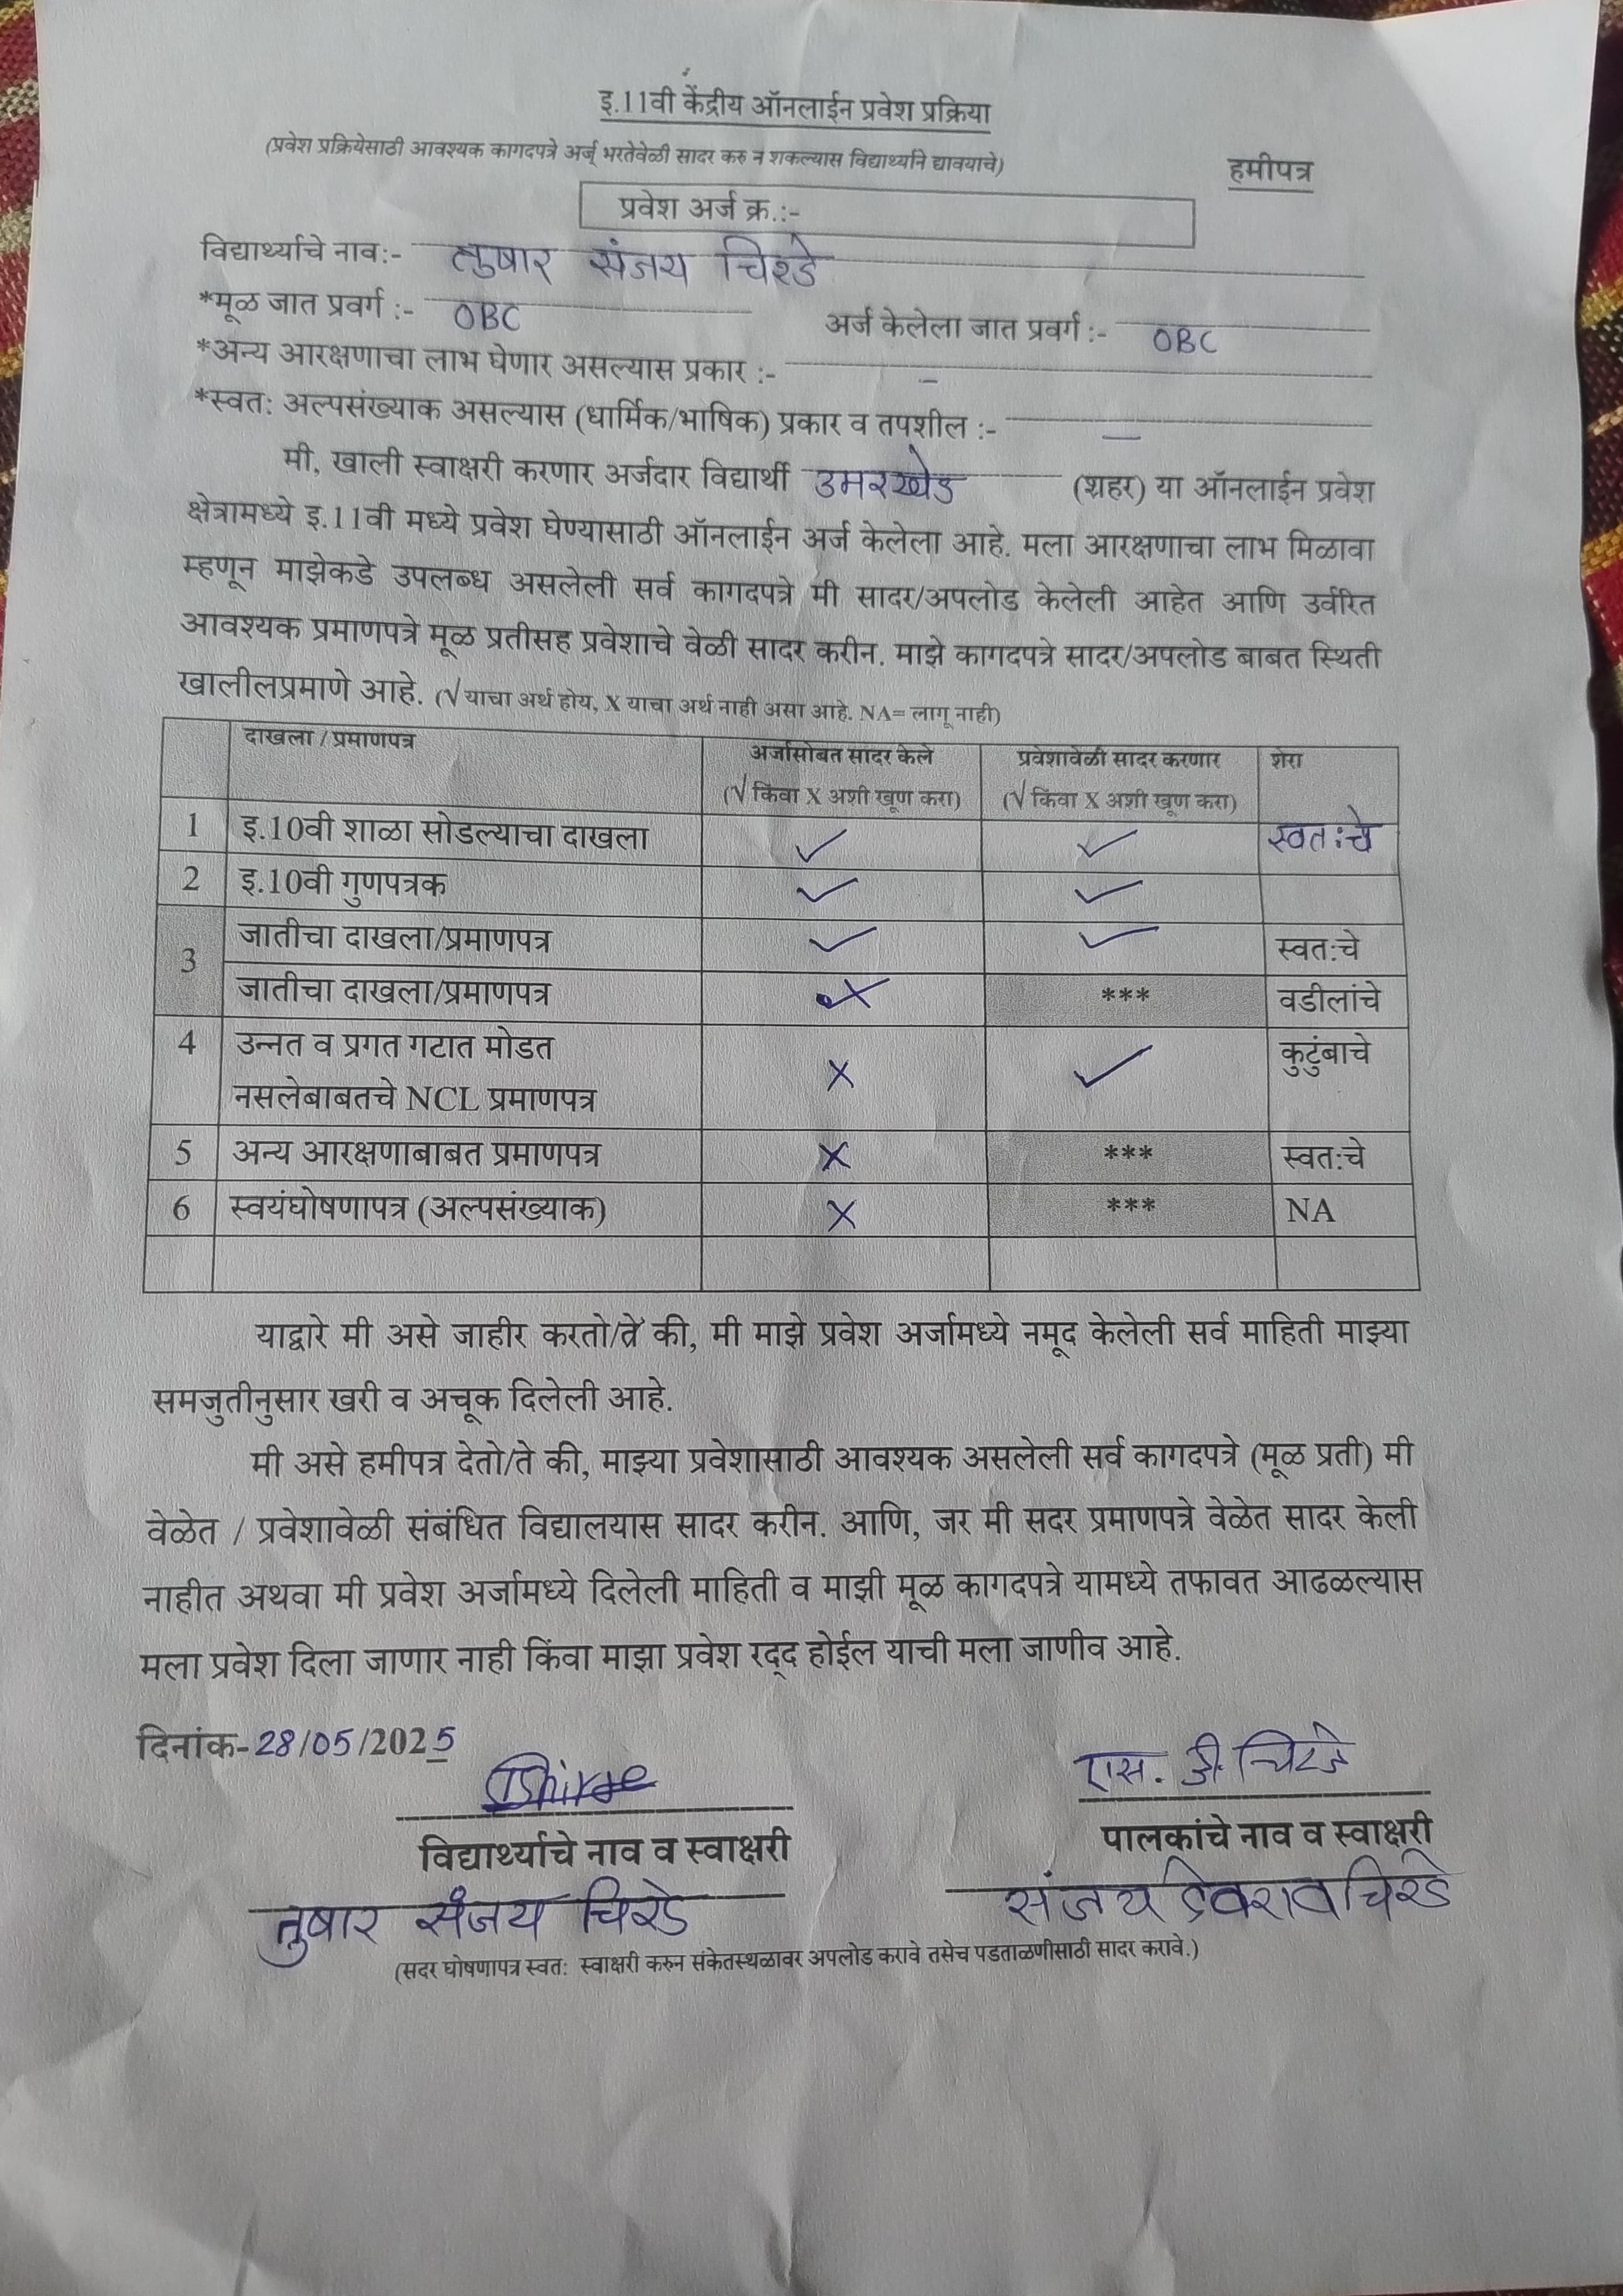 इ.11वी केंद्रीय ऑनलाईन प्रवेश प्रक्रिया
(प्रवेश प्रक्रियेसाठी आवश्यक कागदपत्रे अर्ज् भरतेवेळी सादर करु न शकल्यास विद्यार्थ्याने द्यावयाचे) हमीपत्र
प्रवेश अर्ज क्र.:-
विद्यार्थ्याचे नाव:- तुषार संजय चिरडे
*मूळ जात प्रवर्ग :- OBC अर्ज केलेला जात प्रवर्ग :- OBC
*अन्य आरक्षणाचा लाभ घेणार असल्यास प्रकार :- –
*स्वत: अल्पसंख्याक असल्यास (धार्मिक/भाषिक) प्रकार व तपशील :- —
मी, खाली स्वाक्षरी करणार अर्जदार विद्यार्थी उमरखेड (शहर) या ऑनलाईन प्रवेश
क्षेत्रामध्ये इ.11वी मध्ये प्रवेश घेण्यासाठी ऑनलाईन अर्ज केलेला आहे. मला आरक्षणाचा लाभ मिळावा
म्हणून माझेकडे उपलब्ध असलेली सर्व कागदपत्रे मी सादर/अपलोड केलेली आहेत आणि उर्वरित
आवश्यक प्रमाणपत्रे मूळ प्रतीसह प्रवेशाचे वेळी सादर करीन. माझे कागदपत्रे सादर/अपलोड बाबत स्थिती
खालीलप्रमाणे आहे. (√ याचा अर्थ होय, X याचा अर्थ नाही असा आहे. NA= लागू नाही)
दाखला / प्रमाणपत्र अर्जासोबत सादर केले प्रवेशावेळी सादर करणार शेरा
(√ किंवा X अशी खूण करा) (√ किंवा X अशी खूण करा)
1 इ.10वी शाळा सोडल्याचा दाखला ✓ ✓ स्वत:चे
2 इ.10वी गुणपत्रक ✓ ✓
3 जातीचा दाखला/प्रमाणपत्र ✓ ✓ स्वत:चे
जातीचा दाखला/प्रमाणपत्र X *** वडीलांचे
4 उन्नत व प्रगत गटात मोडत X ✓ कुटुंबाचे
नसलेबाबतचे NCL प्रमाणपत्र
5 अन्य आरक्षणाबाबत प्रमाणपत्र X *** स्वत:चे
6 स्वयंघोषणापत्र (अल्पसंख्याक) X *** NA
याद्वारे मी असे जाहीर करतो/ते की, मी माझे प्रवेश अर्जामध्ये नमूद केलेली सर्व माहिती माझ्या
समजुतीनुसार खरी व अचूक दिलेली आहे.
मी असे हमीपत्र देतो/ते की, माझ्या प्रवेशासाठी आवश्यक असलेली सर्व कागदपत्रे (मूळ प्रती) मी
वेळेत / प्रवेशावेळी संबंधित विद्यालयास सादर करीन. आणि, जर मी सदर प्रमाणपत्रे वेळेत सादर केली
नाहीत अथवा मी प्रवेश अर्जामध्ये दिलेली माहिती व माझी मूळ कागदपत्रे यामध्ये तफावत आढळल्यास
मला प्रवेश दिला जाणार नाही किंवा माझा प्रवेश रद्द होईल याची मला जाणीव आहे.
दिनांक-28/05/2025
एस. डी. चिरडे
विद्यार्थ्याचे नाव व स्वाक्षरी पालकांचे नाव व स्वाक्षरी
तुषार संजय चिरडे संजय देवराव चिरडे
(सदर घोषणापत्र स्वत: स्वाक्षरी करुन संकेतस्थळावर अपलोड करावे तसेच पडताळणीसाठी सादर करावे.)